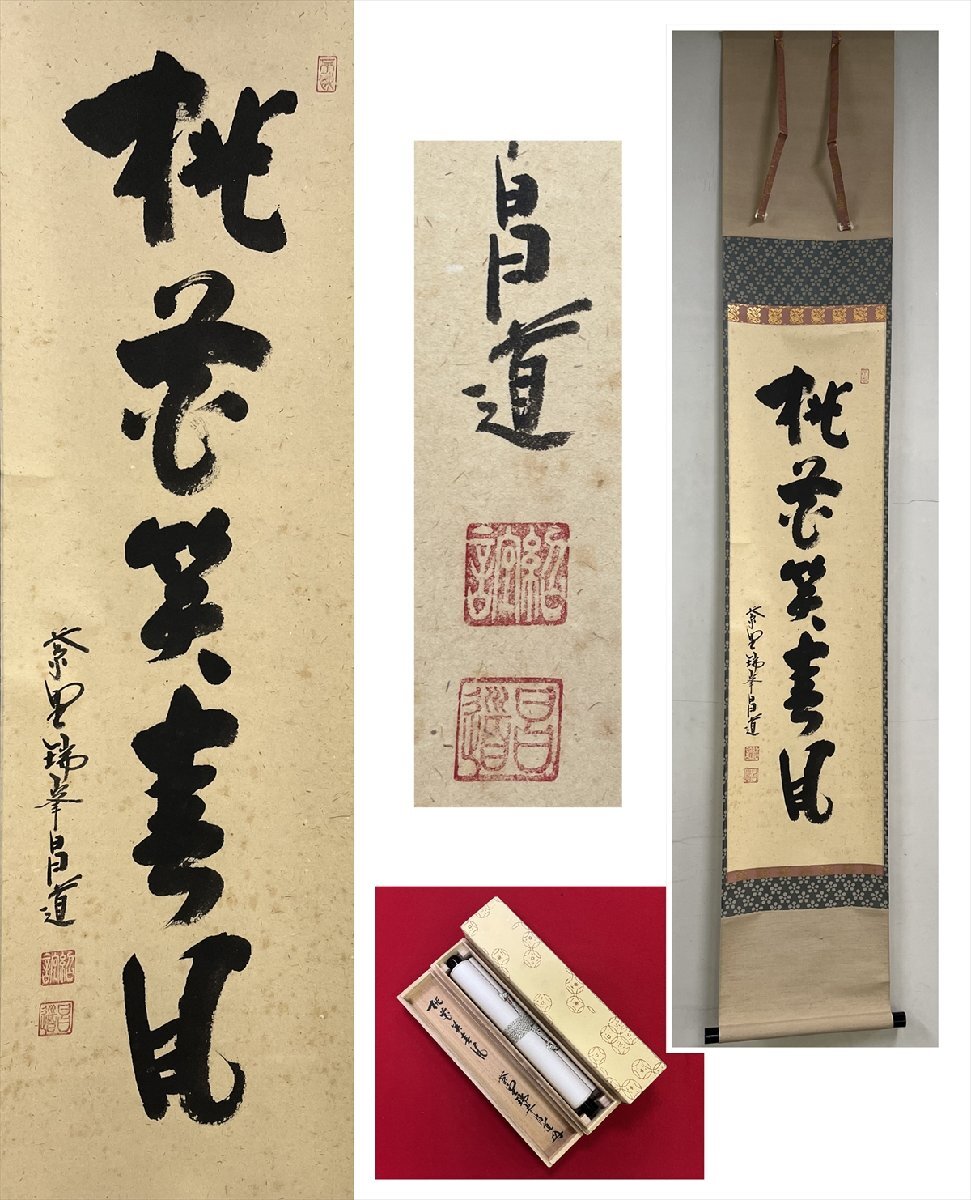 桃花笑春風
紫野瑞峯昌道
昌道
昌道
桃花笑春風
紫野瑞峯昌道
桃花笑春風
紫野瑞峯昌道